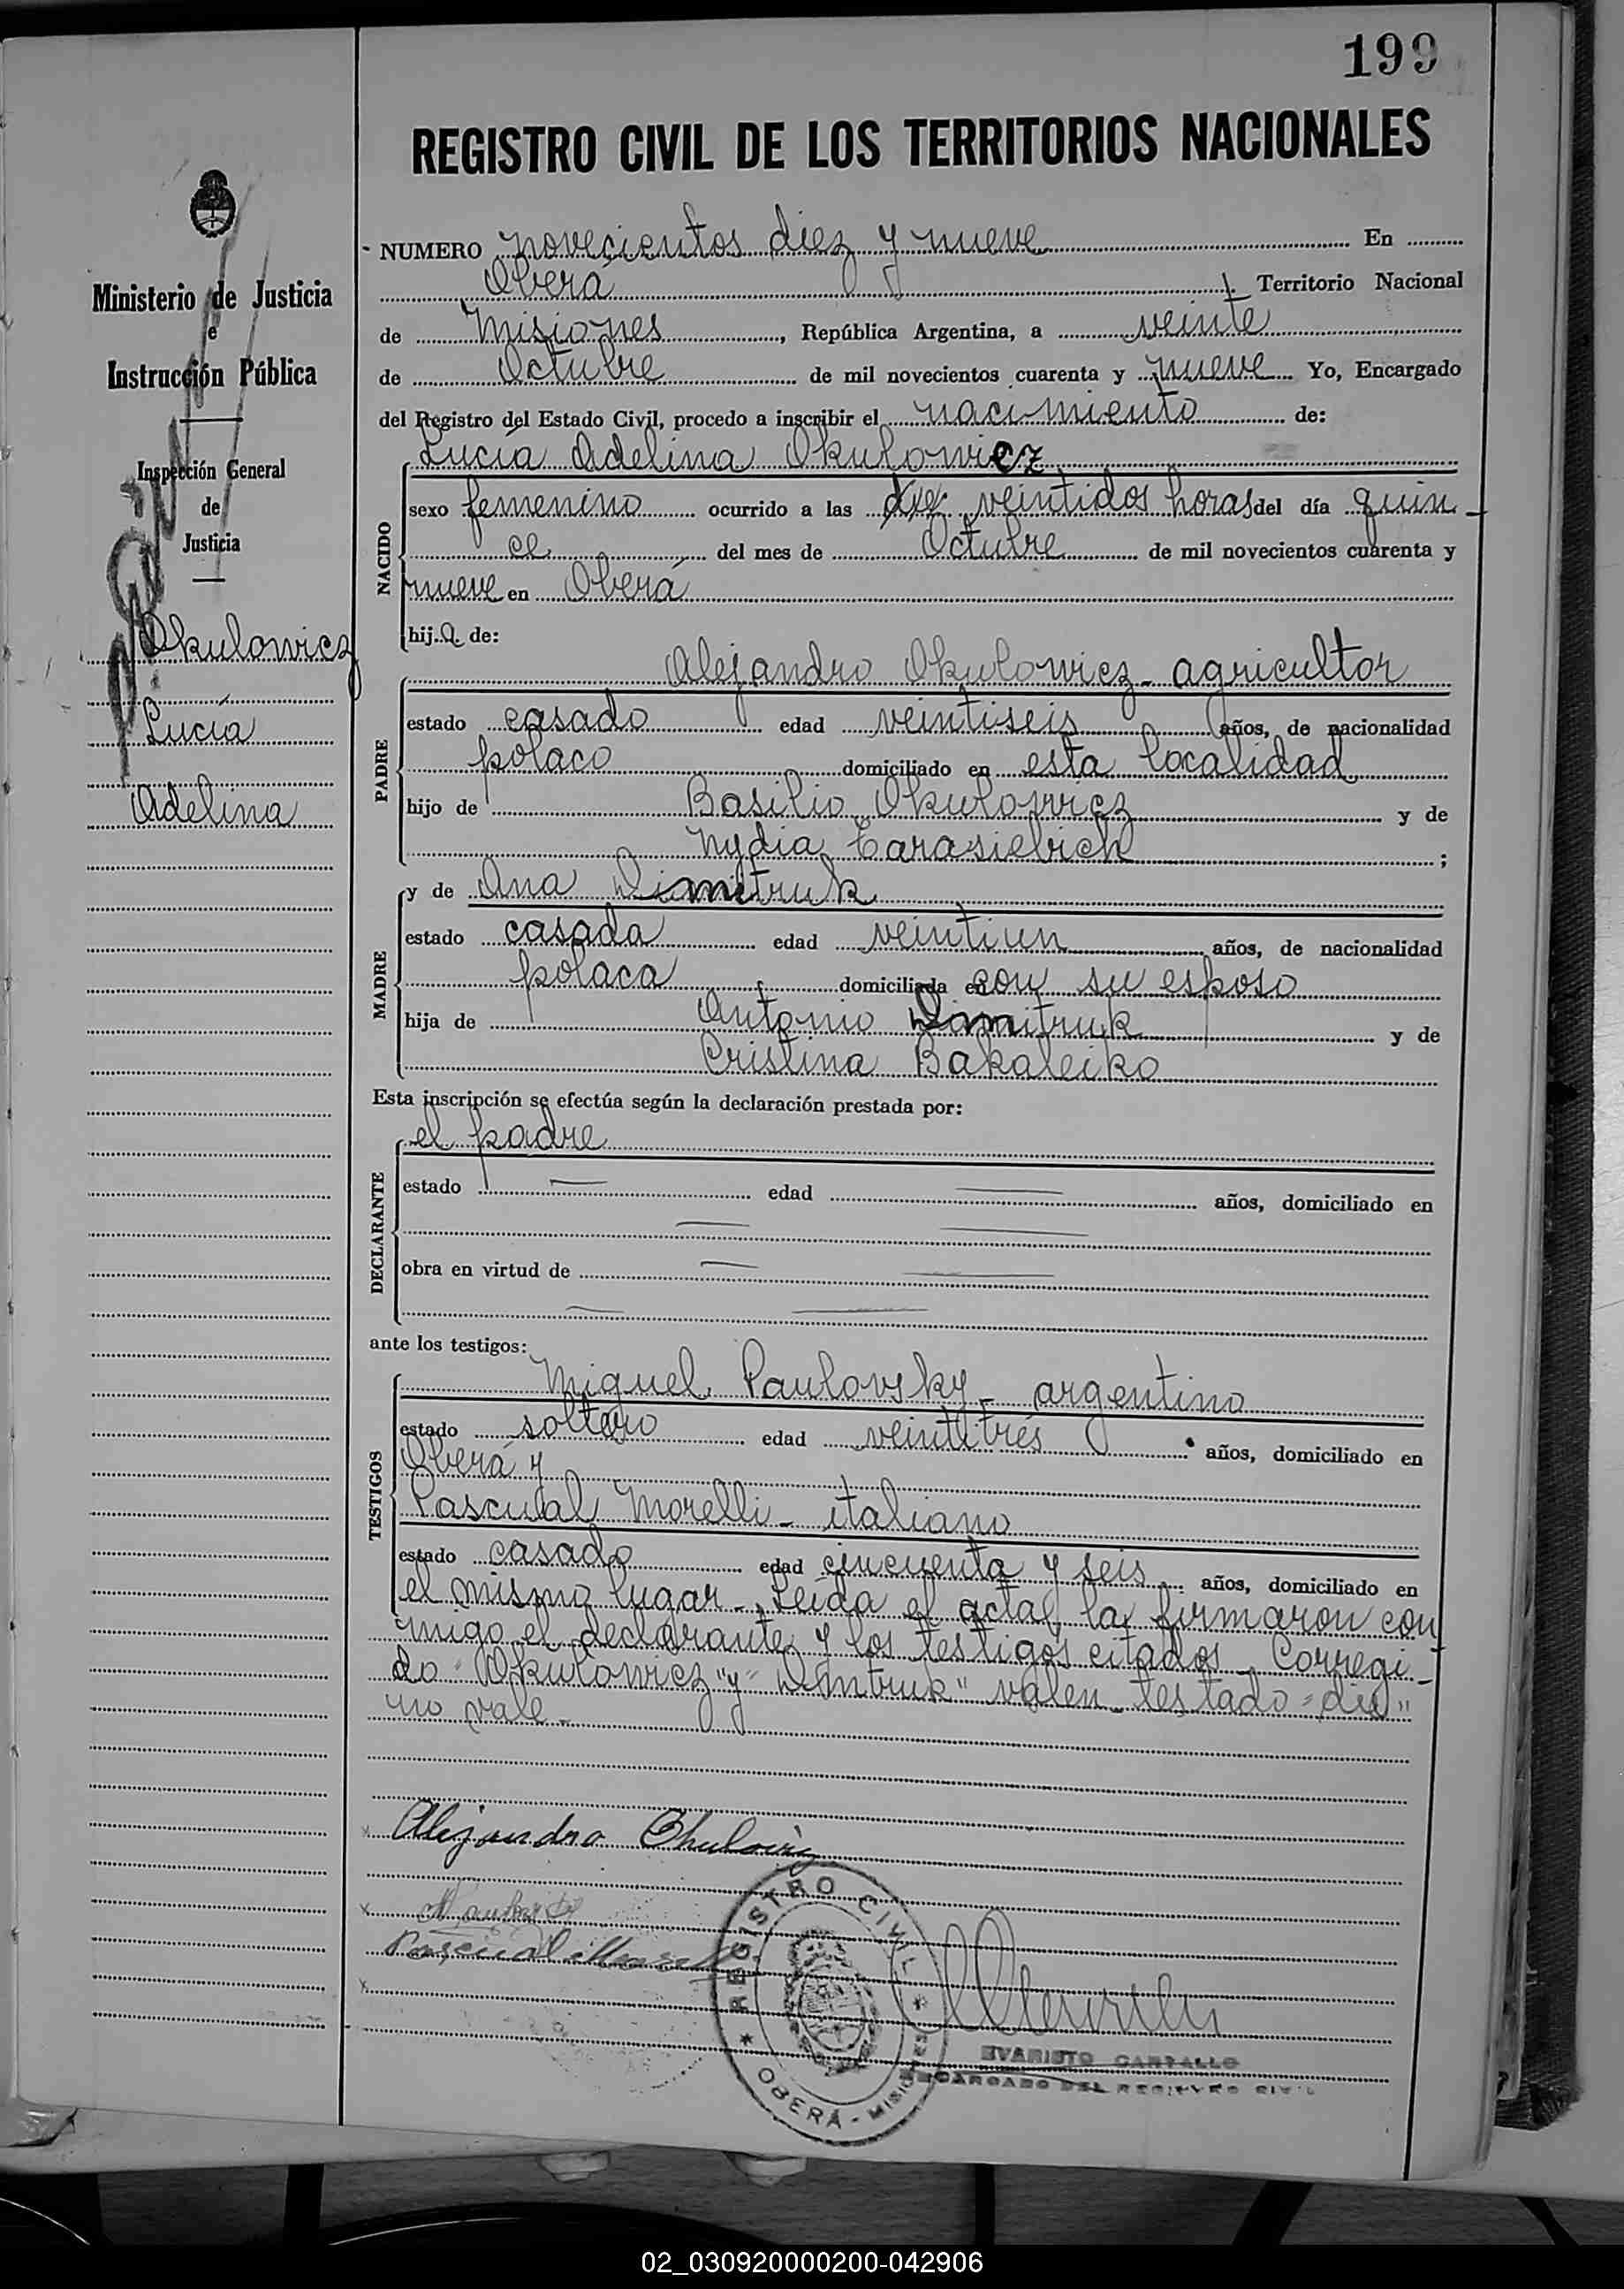 199
REGISTRO CIVIL DE LOS TERRITORIOS NACIONALES
Ministerio de Justicia
e
Instrucción Pública
Inspección General
de
Justicia
Okulowicz
Lucía
Adelina
NUMERO novecientos diez y nueve En
Oberá, Territorio Nacional
de Misiones, República Argentina, a veinte
de Octubre de mil novecientos cuarenta y nueve Yo, Encargado
del Registro del Estado Civil, procedo a inscribir el nacimiento de:
NACIDO
Lucía Adelina Okulowicz
sexo femenino ocurrido a las veintidos horas del día quin
ce del mes de Octubre de mil novecientos cuarenta y
nueve en Oberá
hija de:
PADRE
Alejandro Okulowicz - agricultor
estado casado edad veintiseis años, de nacionalidad
polaco domiciliado en esta localidad
hijo de Basilio Okulowicz y de
Nydia Tarasiebich;
MADRE
y de Ana Dimitruk
estado casada edad veintiun años, de nacionalidad
polaca domiciliada en con su esposo
hija de Antonio Dimitruk y de
Cristina Bakaleiko
Esta inscripción se efectúa según la declaración prestada por:
DECLARANTE
el padre
estado — edad — años, domiciliado en
obra en virtud de —
ante los testigos:
TESTIGOS
Miguel Paulovsky - argentino
estado soltero edad veintitrés años, domiciliado en
Oberá y
Pascual Morelli - italiano
estado casado edad cincuenta y seis años, domiciliado en
el mismo lugar - Leída el acta, la firmaron con
migo el declarante y los testigos citados - Corregi-
do "Okulowicz" y "Dimitruk" valen - testado "diez"
no vale -
Alejandro Okulowicz
Pascual Morelli
REGISTRO CIVIL
OBERÁ - MISIONES
EVARISTO CARBALLO
ENCARGADO DEL REGISTRO CIVIL
02_030920000200-042906